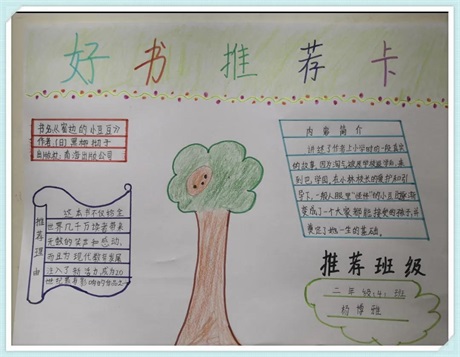 好书推荐卡
书名:窗边的小豆豆
作者:(日)黑柳彻子
出版社:南海出版公司
推荐理由
这本书不仅给全
世界几千万读者带来
无数的笑声和感动,
而且为现代教育发展
注入了新活力,成为20
世纪最有影响的作品之一
内容简介
讲述了作者上小学时的一段真实
的故事,因为淘气被原学校退学后,来
到巴学园,在小林校长的爱护和引
导下,一般人眼里“怪怪”的小豆豆渐渐
变成了一个大家都能接受的孩子,并
奠定了她一生的基础。
推荐班级
二年级(4)班
杨博雅